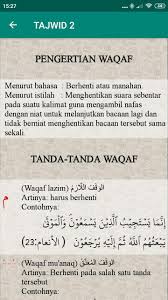 15:27
TAJWID 2
PENGERTIAN WAQAF
Menurut bahasa : Berhenti atau manahan.
Menurut istilah : Menghentikan suara sebentar
pada suatu kalimat guna mengambil nafas
dengan niat untuk melanjutkan bacaan lagi dan
tidak berniat menghentikan bacaan tersebut sama
sekali.
TANDA-TANDA WAQAF
م
(Waqaf lazim) الوقف اللازم
Artinya: harus berhenti
Contohnya:
إِنَّمَا يَسْتَجِيبُ الَّذِينَ يَسْمَعُونَ وَالْمَوْتَى
يَبْعَثُهُمُ اللَّهُ ثُمَّ إِلَيْهِ يُرْجَعُونَ (الأنعام:
(Waqaf mu'anaq)
Artinya: Berhenti pada salah satu tanda
tersebut
Contohnya: